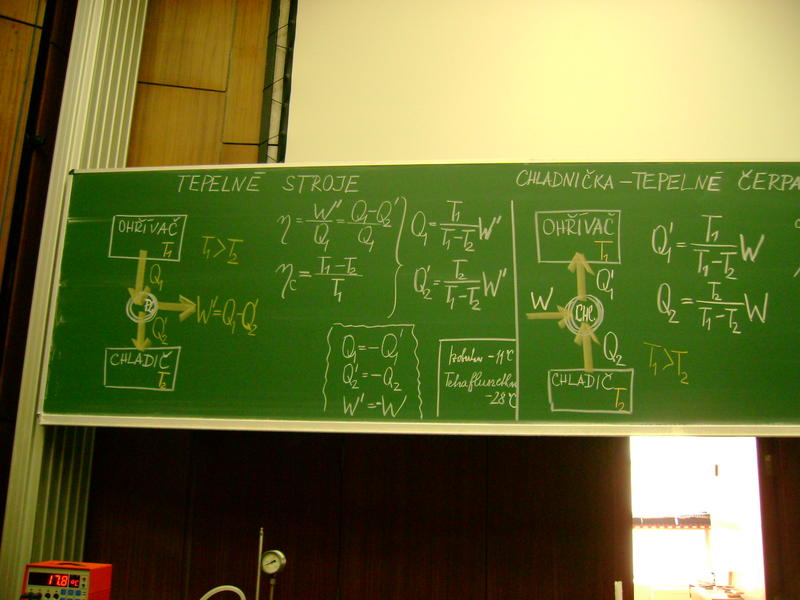 TEPELNÉ STROJE
OHŘÍVAČ
T₁
T₁>T₂
Q₁
W'=Q₁-Q₂'
Q₂'
CHLADIČ
T₂
η=W'/Q₁=Q₁-Q₂'/Q₁
η_C=T₁-T₂/T₁
Q₁=T₁/T₁-T₂ W'
Q₂'=T₂/T₁-T₂ W'
Q₁=-Q₁'
Q₂'=-Q₂
W'=-W
-11°C
-28°C
CHLADNIČKA-TEPELNÉ ČERPA
OHŘÍVAČ
T₁
Q₁'
W
CHL
Q₂
CHLADIČ
T₂
Q₁'=T₁/T₁-T₂ W
Q₂=T₂/T₁-T₂ W
T₁>T₂
17.8 °C